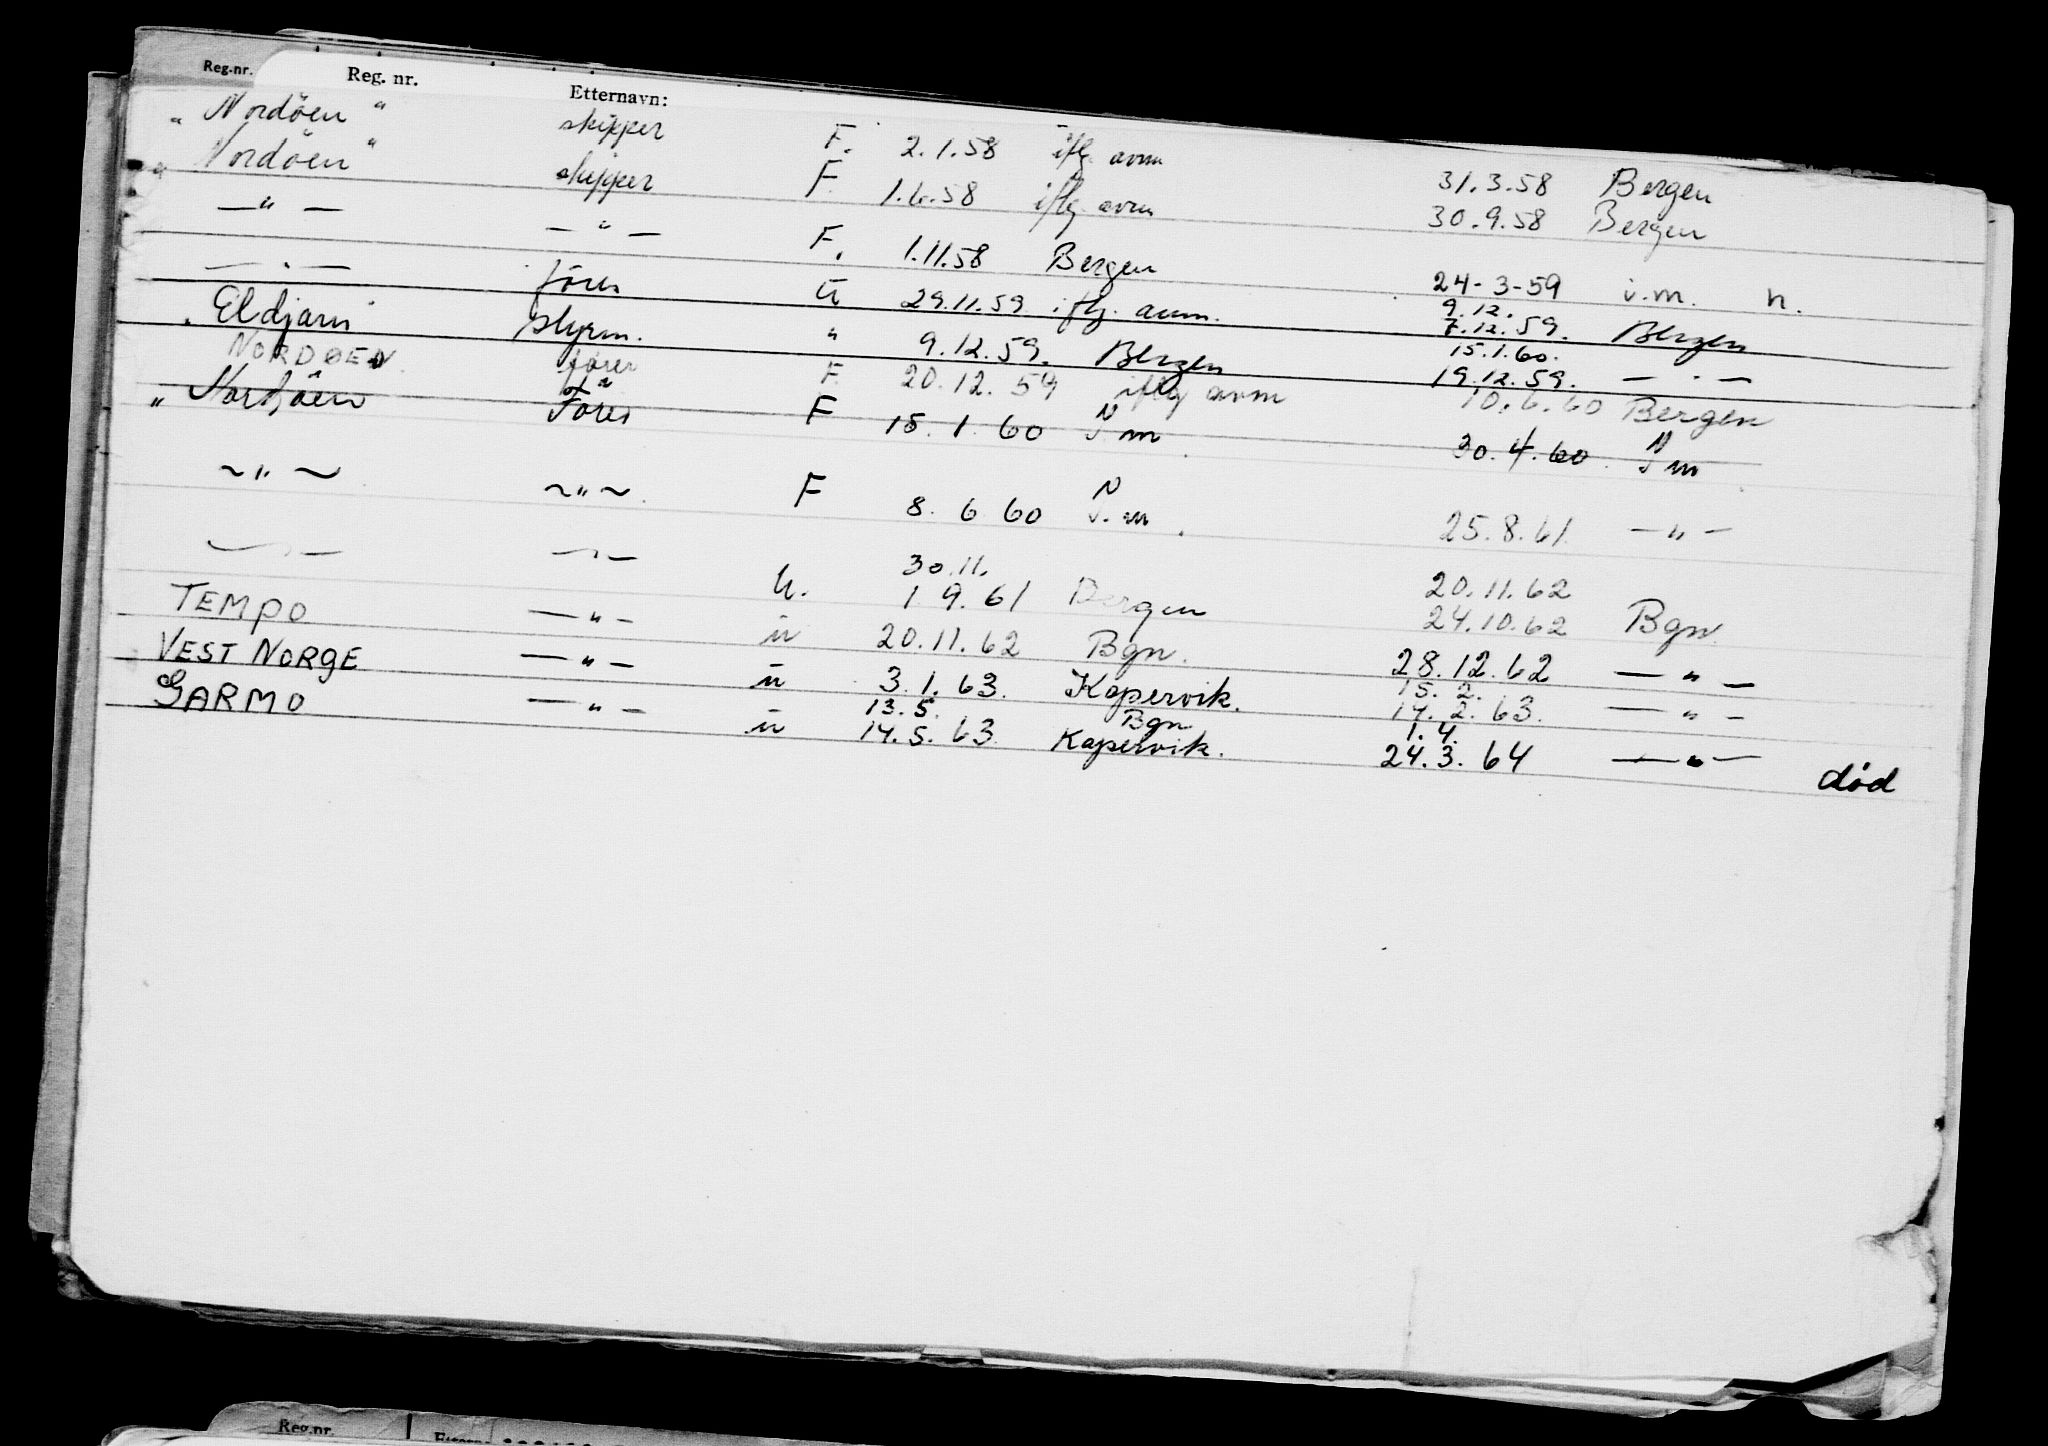 Reg.nr. Reg. nr. Etternavn:
„ Nordöen " skipper F. 2.1.58 iflg. avm 31.3.58 Bergen
„ Nordöen " skipper F. 1.6.58 iflg. avm 30.9.58 Bergen
— " — — " — F. 1.11.58 Bergen 24-3-59 i.m. n.
— " — förer U 29.11.59 iflg. avm. 9.12. 7.12.59. Bergen
Eldjarn styrm. " 9.12.59. Bergen 15.1.60. 19.12.59. — " —
NORDØEN fører F. 20.12.59 iflg avm 10.6.60 Bergen
„ Nordöen Förer F 15.1.60 N I.m 30.4.60. N I.m
~ " ~ ~ " ~ F 8.6.60 N I.m. 25.8.61 — " —
— " — — " — U. 30.11. 1.9.61 Bergen 20.11.62 24.10.62 Bgn
TEMPO — " — u 20.11.62 Bgn. 28.12.62 — " —
VEST NORGE — " — u 3.1.63. Kopervik. 15.2. 14.2.63. — " —
GARMO — " — u 13.5. 14.5.63 Bgn Kopervik. 1.4. 24.3.64 — " — död
Reg.nr.